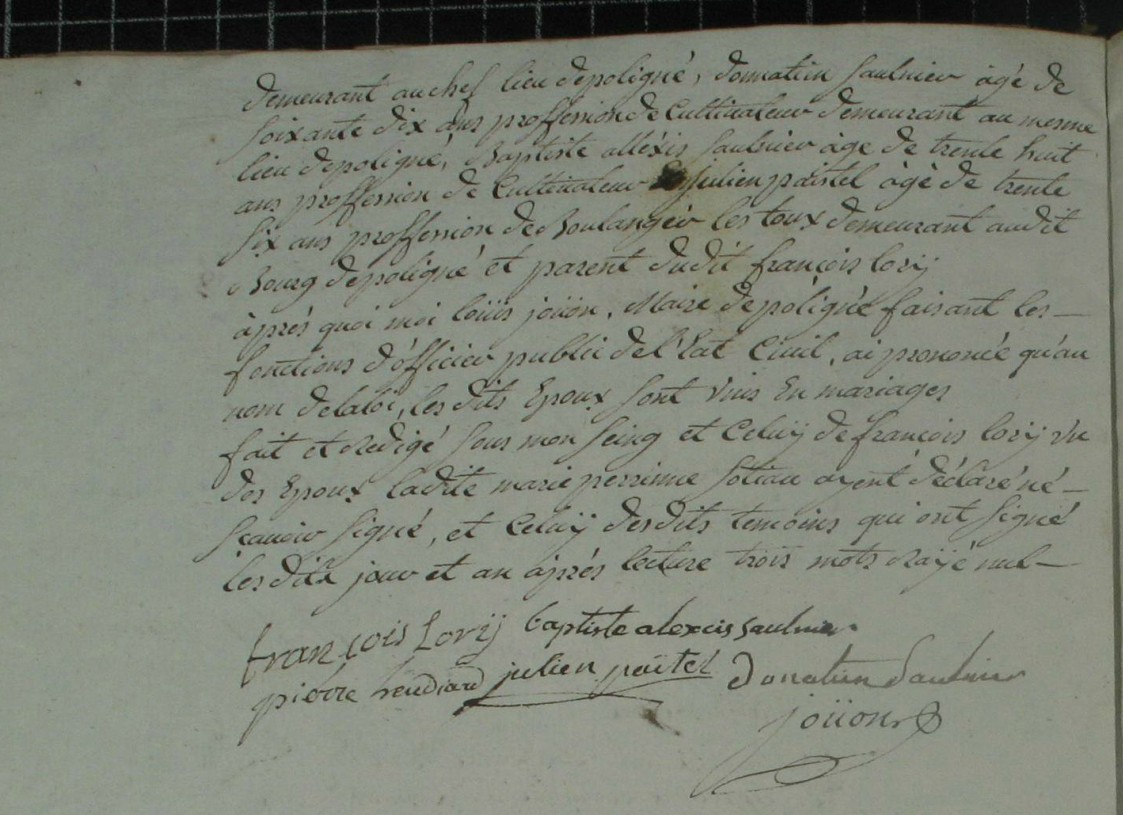 demeurant au chef lieu depoligné, donnatien Saulnier àgé de
soixante dix ans proffession de Cultivateur demeurant au mesme
lieu depoligné, Baptiste alléxis Saulnier àge de trente huit
ans proffession de Cultivateur julien paistel àgé de trente
six ans proffession de Boulangér les toux demeurant audit
Bourg depoligné et parent dudit françois lorÿ
àprés quoi moi loüis joüon, Maire depoligné faisant les
fonctions d'officier public de l'Etat Civil, ai prononcée qu'au
nom delaloi, les dits Epoux sont Vnis En mariages
fait et redigé sous mon seing et Celuÿ de francois lorÿ vn
des Epoux ladite marie perrinne sotiau ayent déclaré né
scavoir signé, et Celuÿ desdits temoins qui ont signé
lesdits jour et an àprés lecture trois mots raÿé nul
françois Lorÿ baptiste alexcis saulnier
pierre heudiard julien paitel Donatien Saulnier
joüon